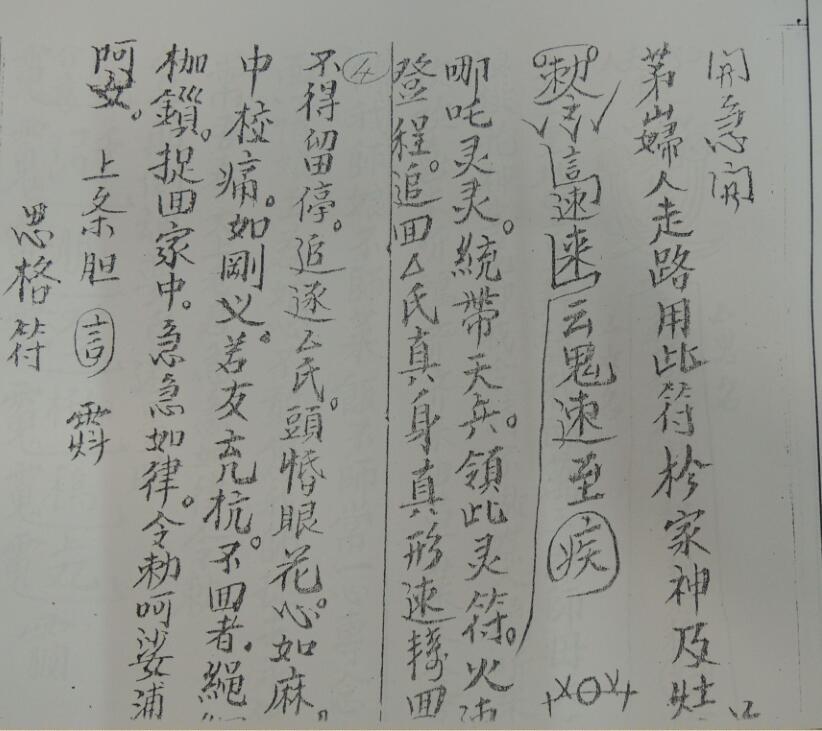 開急開
茅山婦人走路用此符於家神及灶
勅令速速来云鬼速至疾
哪吒灵灵。統帶天兵。領此灵符。火速
登程。追回厶氏真身真形速轉回
④
不得留停。追逐厶氏。頭惛眼花。心如麻。
中校痛。如剛义。若友亢抗。不回者。繩
枷鎖。捉回家中。急急如律。令勅呵娑浦
阿女。 上条胆
思格符